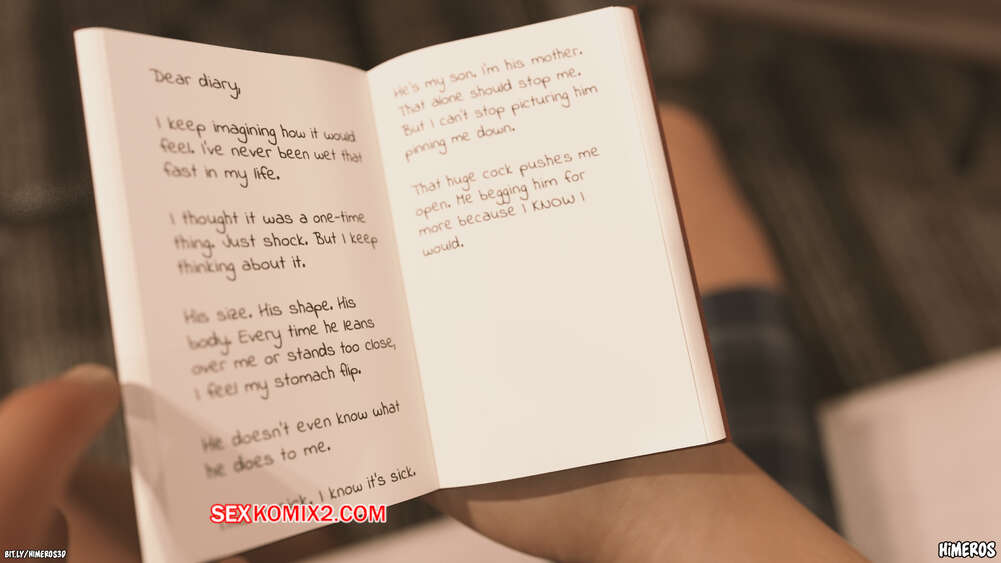 Dear diary,
I keep imagining how it would
feel. I've never been wet that
fast in my life.
I thought it was a one-time
thing. Just shock. But I keep
thinking about it.
His size. His shape. His
body. Every time he leans
over me or stands too close,
I feel my stomach flip.
He doesn't even know what
he does to me.
I know it's sick.
He's my son. I'm his mother.
That alone should stop me.
But I can't stop picturing him
pinning me down.
That huge cock pushes me
open. Me begging him for
more because I KNOW I
would.
SEXKOMIX2.COM
BIT.LY/HIMEROS3D
HIMEROS